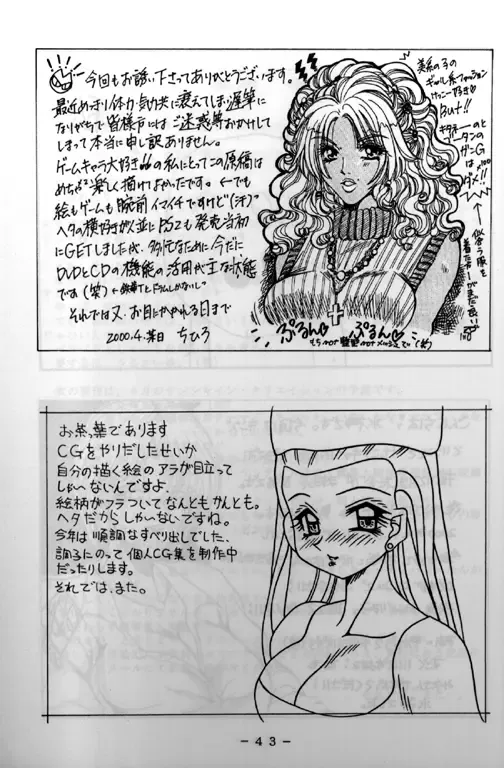 今回もお誘い下さってありがとうございます。
最近めっきり体力・気力共に衰えてしまい遅筆に
なりがちで皆様方にはご迷惑等おかけして
しまって本当に申し訳ありません。
ゲームキャラ大好きの私にとってこの原稿は
めちゃ楽しく描けてよかったです。←でも
絵もゲームも腕前イマイチですけど(汗)
ヘタの横好き並にPS2も発売当初
にGETしましたが、多忙なために今だに
DVDとCDの機能の活用だけな状態
です(笑)
それでは又、お目にかかれる日まで
2000.4. ちひろ
美系の子の
ギャル系ファッション
But!!
ダメ!!
似合う服を
着た方が
ぷるん♡
ぷるん♡
お茶葉であります
CGをやりだしたせいか
自分の描く絵のアラが目立って
しゃーないんですよ。
絵柄がフラついてなんともかんとも。
ヘタだからしゃーないですね。
今年は順調なすべり出しでした、
調子にのって個人CG集を制作中
だったりします。
それでは、また。
- 43 -